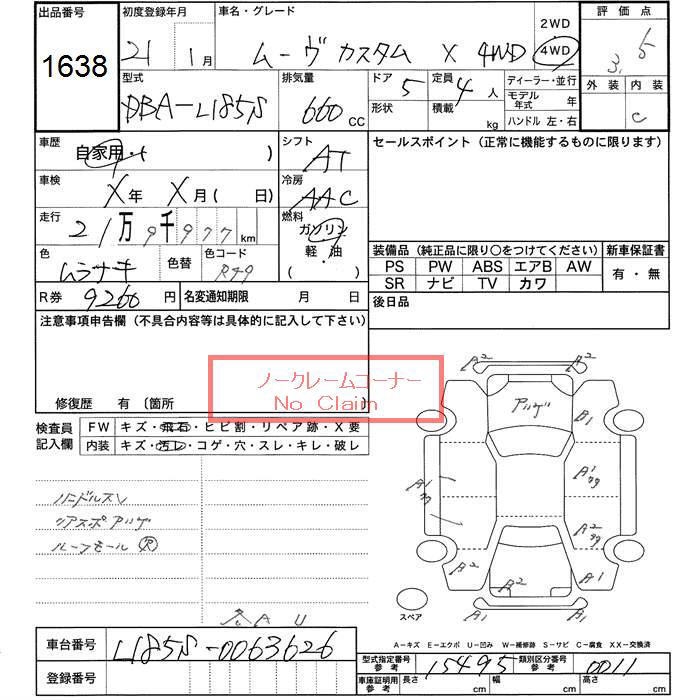 出品番号 初度登録年月 車名・グレード 2WD 評価点
1638 21年 1月 ムーヴ カスタム X 4WD 4WD 3.5
型式 排気量 ドア 定員 ディーラー・並行 外装 内装
DBA-L185S 660CC 5 4人 モデル年式 年 C
形状 積載 kg ハンドル 左・右
車歴 シフト セールスポイント(正常に機能するものに限ります)
自家用・( ) AT
車検 冷房
X年 X月( 日) AAC
走行 燃料
21万9千977km ガソリン
軽・油
( )
色 色替 色コード 装備品(純正品に限り〇をつけてください) 新車保証書
ムラサキ R49 PS PW ABS エアB AW 有・無
SR ナビ TV カワ
R券 9260円 名変通知期限 月 日 後日品
注意事項申告欄(不具合内容等は具体的に記入して下さい)
ノークレームコーナー
No Claim
修復歴 有 〔箇所
検査員記入欄 FW キズ・飛石・ヒビ割・リペア跡・X要
内装 キズ・汚レ・コゲ・穴・スレ・キレ・破レ
ハンドルスレ
リアスポ アリゲ
ルーフモール 欠
A2 A2
アリゲ
B1
A1
A1
A2
B2 A2 A1
A1 A1
スペア
A U
A-キズ E-エクボ U-凹み W-補修跡 S-サビ C-腐食 XX-交換済
車台番号 L185S-0063626
型式指定番号 参考 15495 類別区分番号 参考 0011
登録番号
車庫証明用 参考 長さ cm 幅 cm 高さ cm